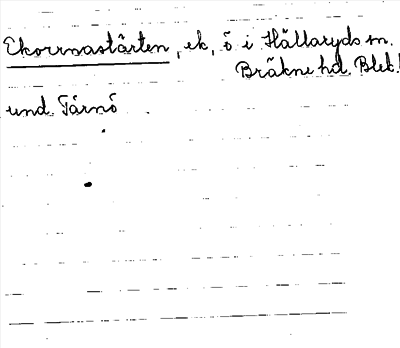 Ekorrnastärten, ek, ö i Hällaryds sn.
Bräkne hd. Blek.
und. Tärnö